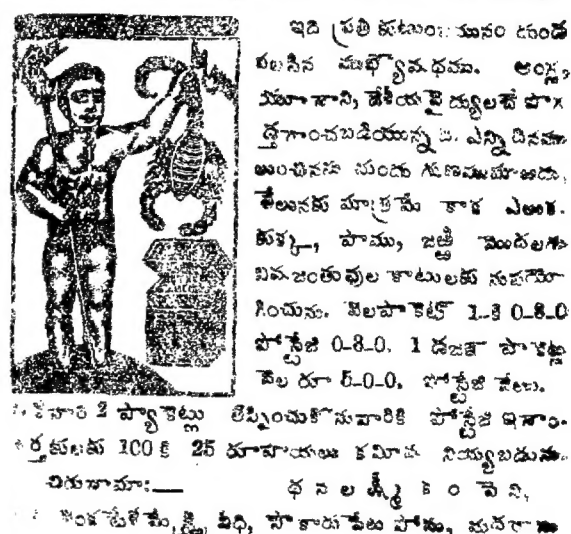 ఇది ప్రతి కుటుంబమునం దుండ
వలసిన ముఖ్యౌషధము. ఆంగ్ల,
యూనాని, దేశీయ వైద్యులచే పొగ
డ్తగాంచబడియున్నది. ఎన్ని దినము
లుంచినను మందు గుణముమారదు.
తేలునకు మాత్రమే కాక ఎలుక.
కుక్క, పాము, జఱ్ఱి మొదలగు
విషజంతువుల కాటులకు నుపయో
గించును. వెలపాకెట్ 1-కి 0-8-0
పోస్టేజి 0-8-0. 1 డజను పాకెట్ల
వెల రూ 5-0-0. పోస్టేజి వేరు.
2 ప్యాకెట్లు తెప్పించుకొనువారికి పోస్టేజి
100 కి 25 రూపాయలు కమీషను నియ్యబడును.
చిరునామా:— ధనలక్ష్మీ కంపెని,
వీధి, సౌకారుపేట పోస్టు, మదరాసు